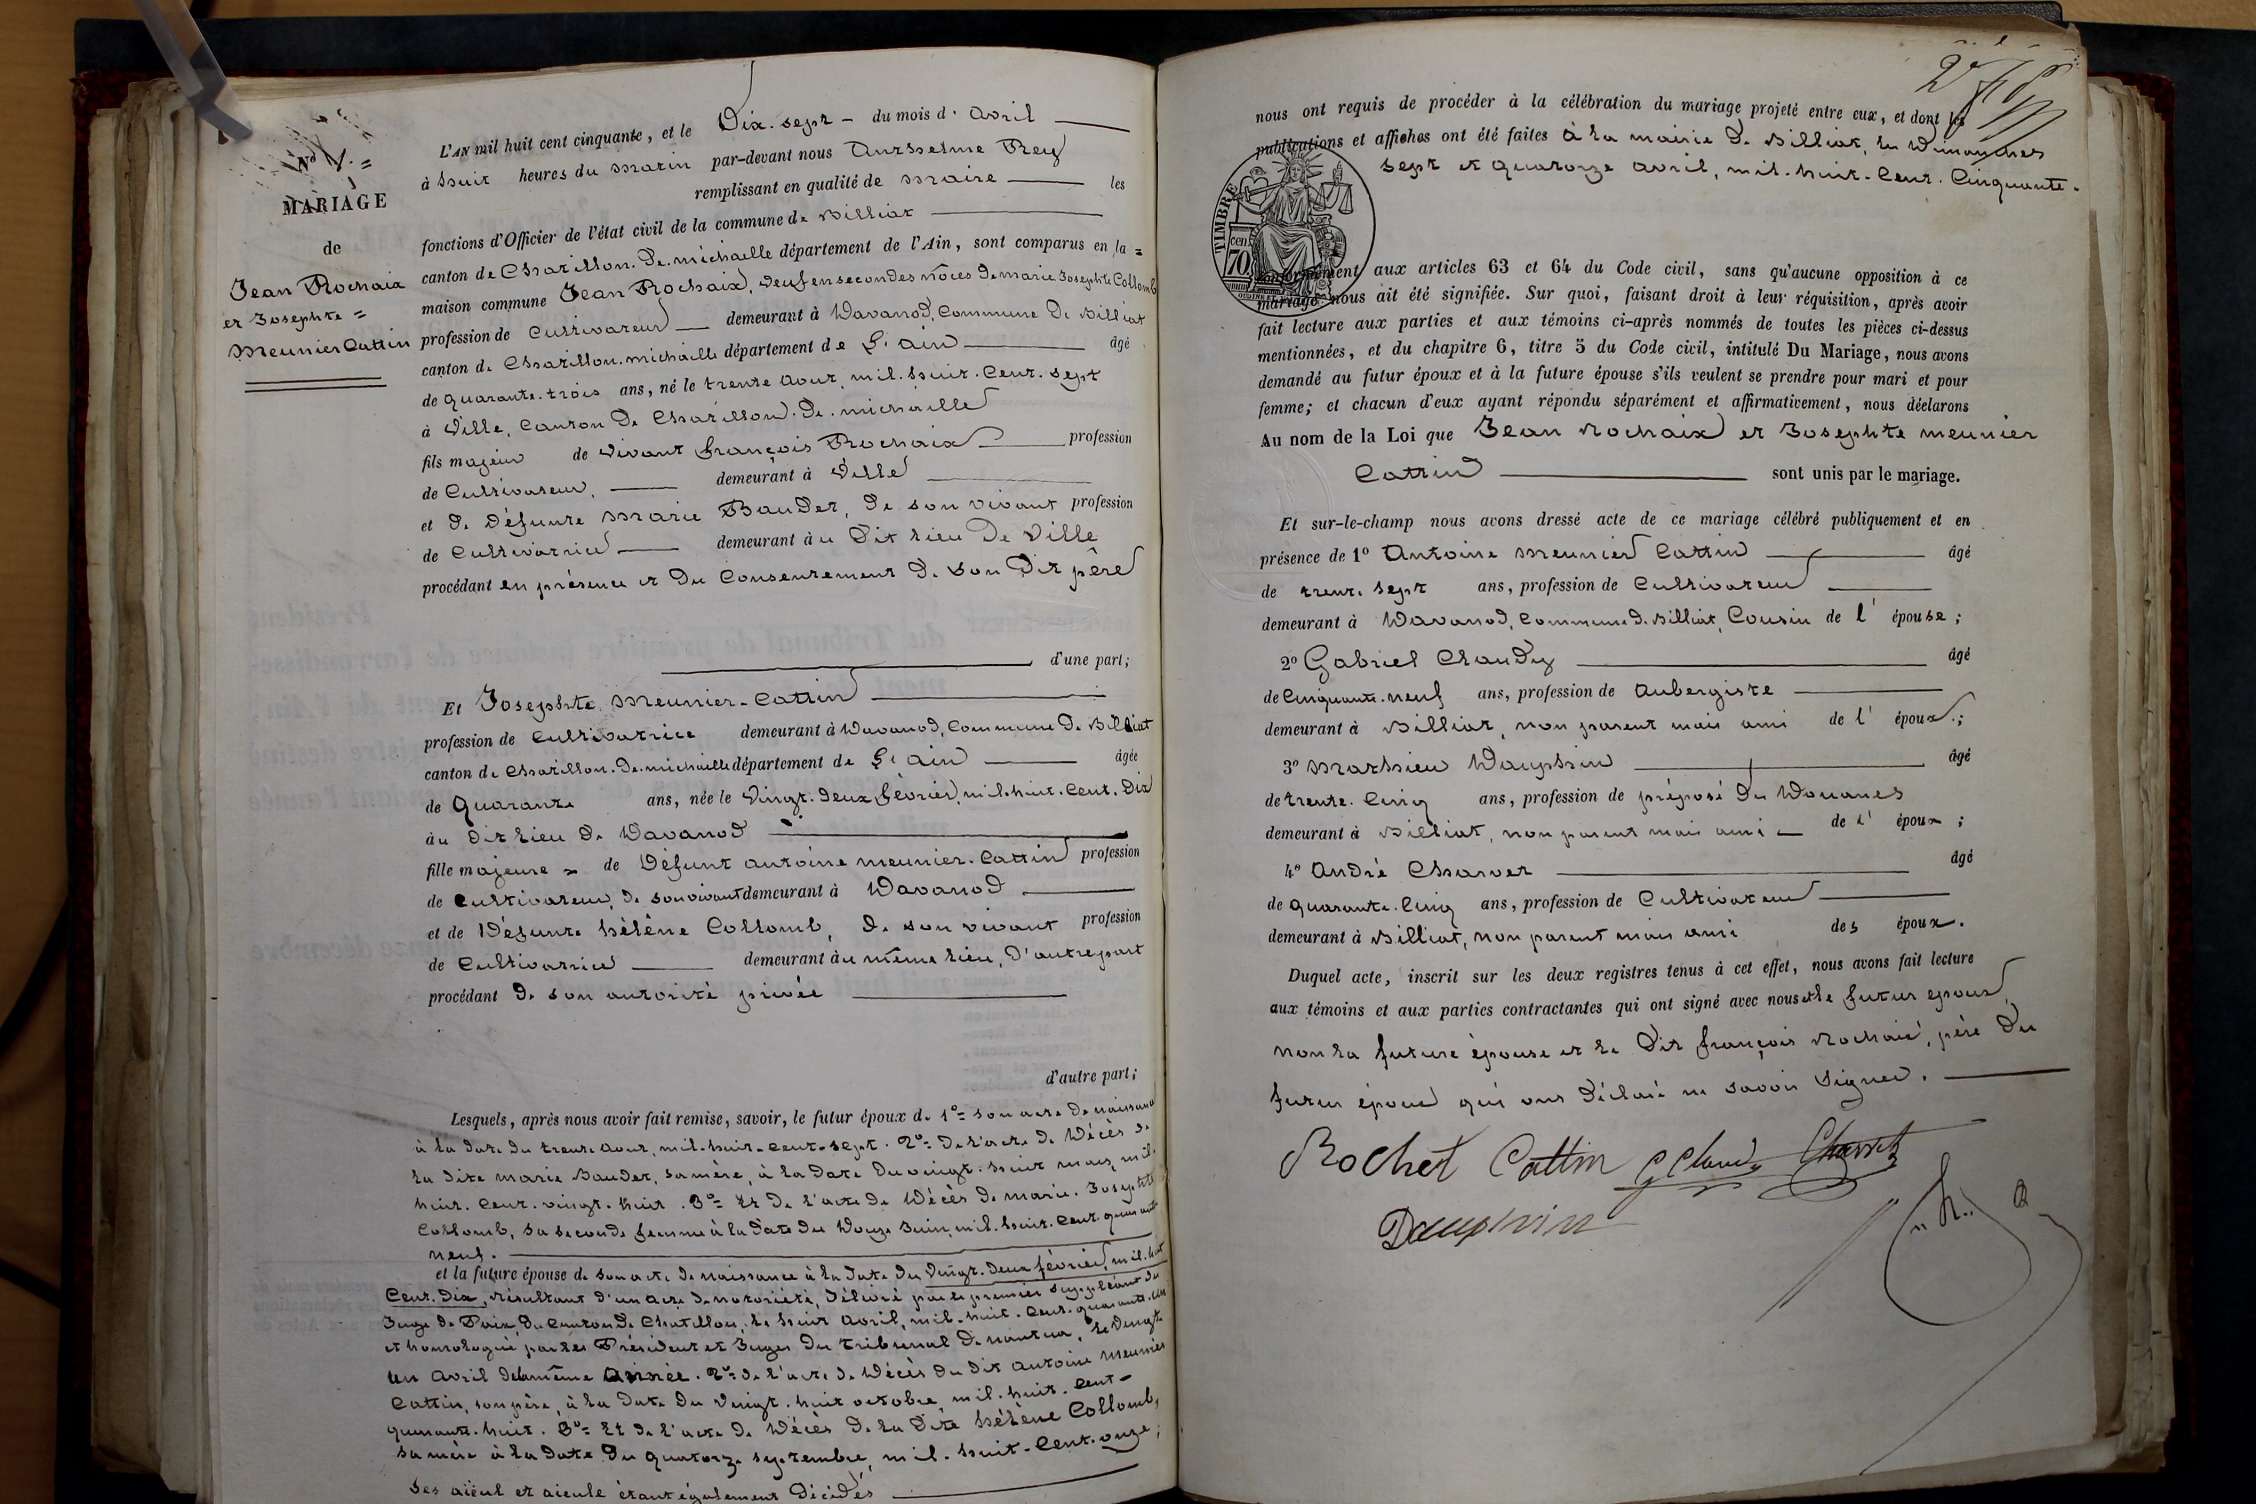 Nº
MARIAGE
de
Jean Rochaix
et Josephte =
Meunier Cattin
L'AN mil huit cent cinquante, et le Dix-sept - du mois d' avril
à huit heures du matin par-devant nous Anthelme Rey
remplissant en qualité de maire les
fonctions d'Officier de l'état civil de la commune de Billiat
canton de Chatillon-de-michaille département de l'Ain, sont comparus en la =
maison commune Jean Rochaix, veuf en secondes nôces de marie Josephte Collomb
profession de Cultivateur demeurant à Davanod, Commune de Billiat
canton de Chatillon-michaille département de L'ain âgé
de quarante-trois ans, né le trente aout, mil-huit-cent-sept
à Ville, Canton de Chatillon-de-michaille
fils majeur de vivant françois Rochaix profession
de Cultivateur, demeurant à Ville
et de Défunte Marie Baudet, de son vivant profession
de Cultivatrice demeurant àu Dit lieu de Ville
procédant en présence et du Consentement de son Dit père
d'une part;
Et Josephte Meunier-Cattin
profession de Cultivatrice demeurant à Davanod, Commune de Billiat
canton de Chatillon-de-michaille département de L'ain âgée
de Quarante ans, née le vingt-deux février, mil-huit-cent-Dix
àu Dit lieu de Davanod
fille majeure = de Défunt antoine meunier-Cattin profession
de Cultivateur, de son vivant demeurant à Davanod
et de Défunte hélène Collomb, de son vivant profession
de Cultivatrice demeurant àu même lieu, D'autre part
procédant de son autorité privée
d'autre part;
Lesquels, après nous avoir fait remise, savoir, le futur époux de 1º= son acte de naissance
à la date du trente aout, mil-huit-cent-sept. 2º= De l'acte de Décès de
la dite marie Baudet, sa mère, à la date du vingt-huit mars, mil-
huit-cent-vingt-huit. 3º= Et de l'acte de Décès de marie-Josephte
Collomb, sa seconde femme à la date du Douze Juin, mil-huit-cent-quarante
neuf.
et la future épouse de son acte de naissance à la date du vingt-deux février, mil-huit
Cent-Dix, résultant d'un acte de notoriété, Délivré par le premier suppléant du
Juge de Paix du Canton de Chatillon, le huit avril, mil-huit-cent-quarante-un
et homologué par les Président et Juges du tribunal de nantua, le vingt
un avril de la même année. 2º= de l'acte de Décès du dit antoine Meunier
Cattin, son père, à la date du vingt-huit octobre, mil-huit-cent-
quarante-huit. 3º= Et de l'acte de Décès de la Dite hélène Collomb,
sa mère à la date du quatorze septembre, mil-huit-cent-onze;
Ses aieul et aieule étant également Décédés
nous ont requis de procéder à la célébration du mariage projeté entre eux, et dont les
publications et affiches ont été faites à la mairie de Billiat, les Dimanches
sept et quatorze avril, mil-huit-cent-Cinquante.
TIMBRE
cen
70
conformément aux articles 63 et 64 du Code civil, sans qu'aucune opposition à ce
mariage nous ait été signifiée. Sur quoi, faisant droit à leur réquisition, après avoir
fait lecture aux parties et aux témoins ci-après nommés de toutes les pièces ci-dessus
mentionnées, et du chapitre 6, titre 5 du Code civil, intitulé Du Mariage, nous avons
demandé au futur époux et à la future épouse s'ils veulent se prendre pour mari et pour
femme; et chacun d'eux ayant répondu séparément et affirmativement, nous déclarons
Au nom de la Loi que Jean Rochaix et Josephte meunier
Cattin sont unis par le mariage.
Et sur-le-champ nous avons dressé acte de ce mariage célébré publiquement et en
présence de 1º Antoine meunier Cattin âgé
de trente sept ans, profession de Cultivateur
demeurant à Davanod, Commune de Billiat, Cousin de l' épouse;
2º Gabriel Chaudy âgé
de Cinquante-neuf ans, profession de aubergiste
demeurant à Billiat, non parent mais ami de l' époux;
3º Mathieu Dauphin âgé
de trente-Cinq ans, profession de préposé des Douanes
demeurant à Billiat, non parent mais ami de l' époux;
4º André Charvet âgé
de quarante-Cinq ans, profession de Cultivateur
demeurant à Billiat, non parent mais ami des époux.
Duquel acte, inscrit sur les deux registres tenus à cet effet, nous avons fait lecture
aux témoins et aux parties contractantes qui ont signé avec nous et le futur époux,
non la future épouse et le Dit françois Rochaix, père du
futur époux qui ont Déclaré ne savoir signer.
Rochet Cattin Charvet
Dauphin